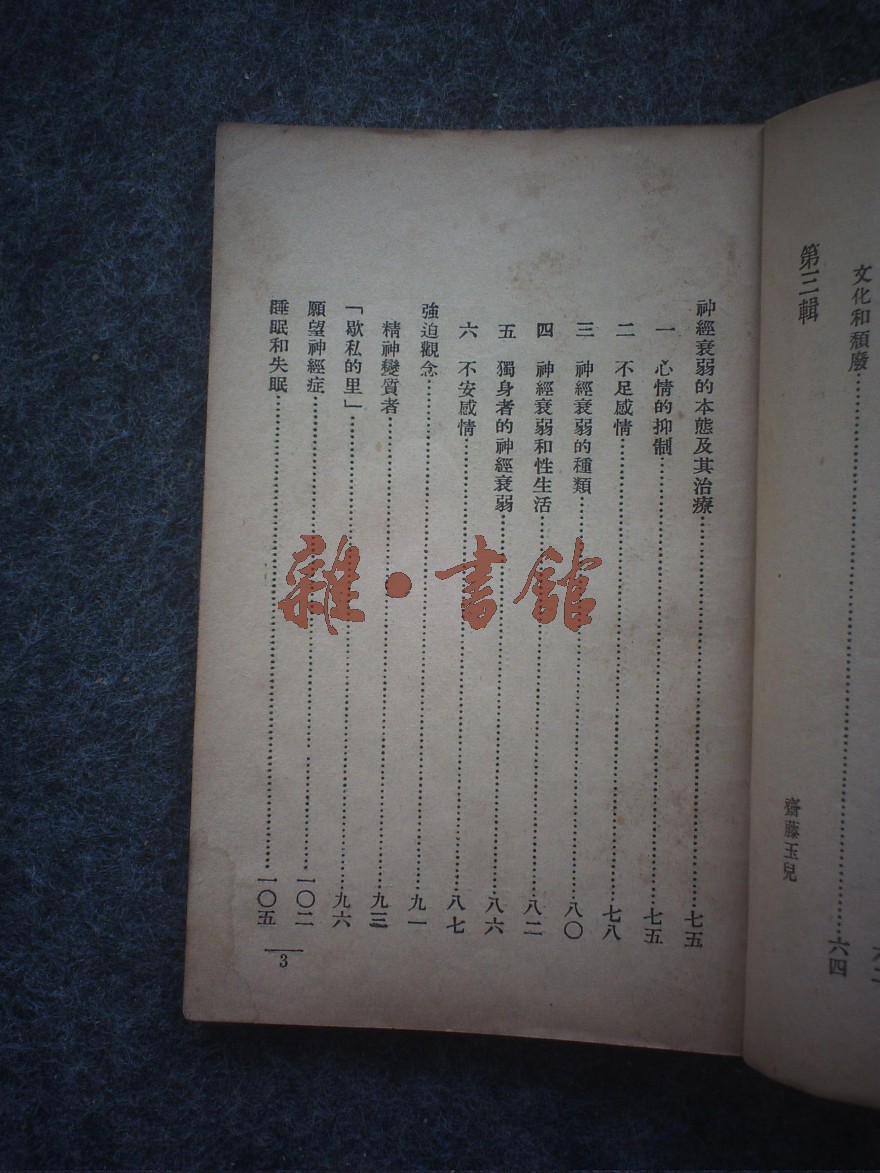 文化和頹廢……六四
第三輯 齋藤玉兒
神經衰弱的本態及其治療……七五
一 心情的抑制……七五
二 不足感情……七八
三 神經衰弱的種類……八〇
四 神經衰弱和性生活……八二
五 獨身者的神經衰弱……八六
六 不安感情……八七
強迫觀念……九一
精神變質者……九三
「歇私的里」……九六
願望神經症……一〇二
睡眠和失眠……一〇五
3
雜·書館